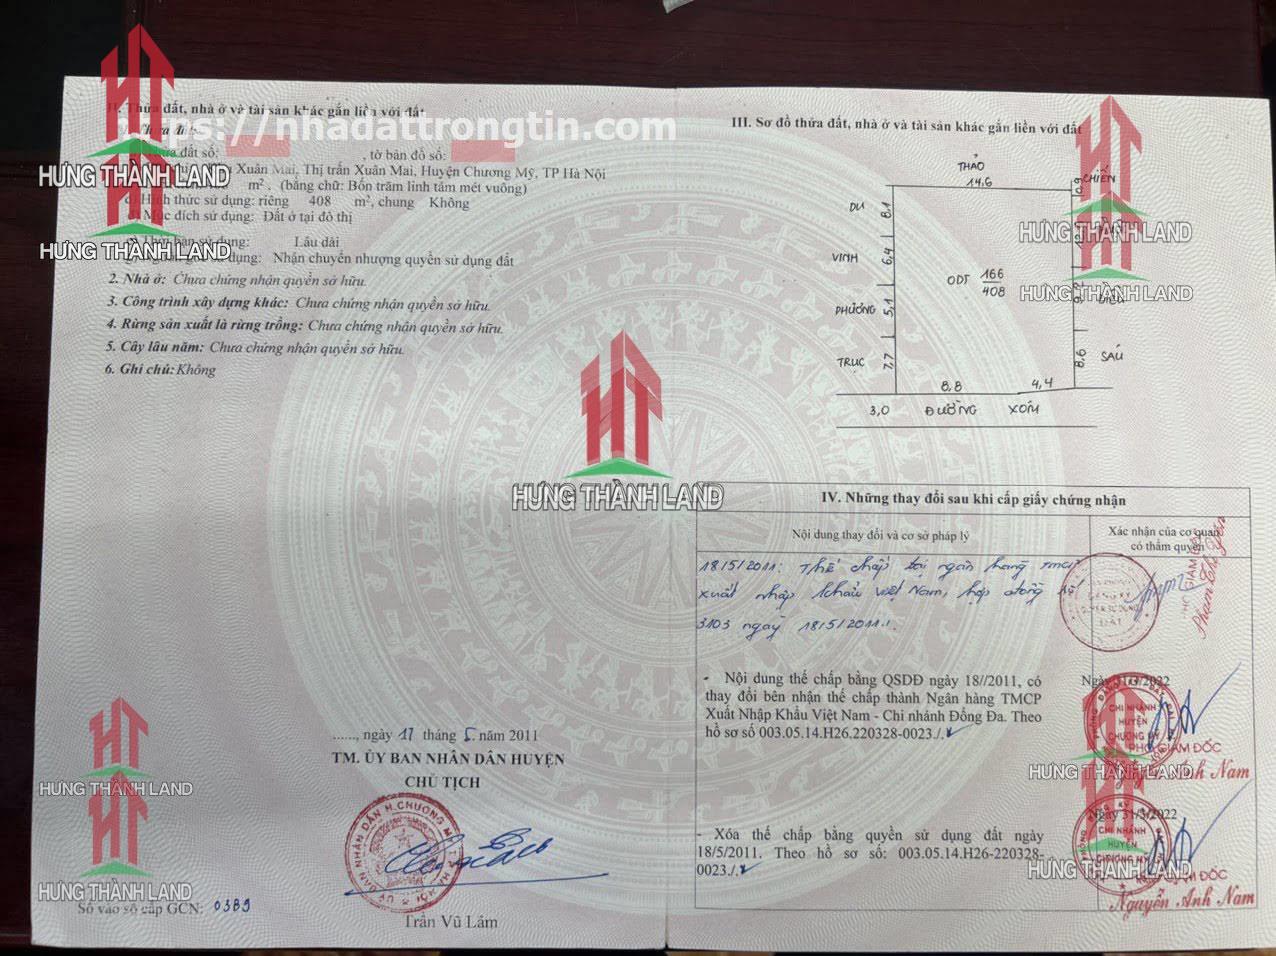 II. Thửa đất, nhà ở và tài sản khác gắn liền với đất
https://nhadattrongtin.com
Thửa đất số: , tờ bản đồ số:
Xuân Mai, Thị trấn Xuân Mai, Huyện Chương Mỹ, TP Hà Nội
m², (bằng chữ: Bốn trăm linh tám mét vuông)
Hình thức sử dụng: riêng 408 m², chung Không
Mục đích sử dụng: Đất ở tại đô thị
Thời hạn sử dụng: Lâu dài
sử dụng: Nhận chuyển nhượng quyền sử dụng đất
2. Nhà ở: Chưa chứng nhận quyền sở hữu.
3. Công trình xây dựng khác: Chưa chứng nhận quyền sở hữu.
4. Rừng sản xuất là rừng trồng: Chưa chứng nhận quyền sở hữu.
5. Cây lâu năm: Chưa chứng nhận quyền sở hữu.
6. Ghi chú: Không
......, ngày 17 tháng 5 năm 2011
TM. ỦY BAN NHÂN DÂN HUYỆN
CHỦ TỊCH
Trần Vũ Lâm
Số vào sổ cấp GCN: 0389
III. Sơ đồ thửa đất, nhà ở và tài sản khác gắn liền với đất
THẢO
14,6
0,9 CHIẾN
DU 8,1
VINH 6,4
ODT 166
408
PHƯƠNG 5,1
TRUC 7,7
8,6 SÁU
8,8 4,4
3,0 ĐƯỜNG XÓM
IV. Những thay đổi sau khi cấp giấy chứng nhận
Nội dung thay đổi và cơ sở pháp lý
Xác nhận của cơ quan
có thẩm quyền
18/5/2011: Thế chấp tại ngân hàng TMCP
xuất nhập khẩu Việt Nam, hợp đồng số
3103 ngày 18/5/2011.
- Nội dung thế chấp bằng QSDĐ ngày 18//2011, có
thay đổi bên nhận thế chấp thành Ngân hàng TMCP
Xuất Nhập Khẩu Việt Nam - Chi nhánh Đống Đa. Theo
hồ sơ số 003.05.14.H26.220328-0023./.
Ngày 31/3/2022
CHI NHÁNH
HUYỆN
CHƯƠNG MỸ
PHÓ GIÁM ĐỐC
Nguyễn Anh Nam
- Xóa thế chấp bằng quyền sử dụng đất ngày
18/5/2011. Theo hồ sơ số: 003.05.14.H26-220328-
0023./.
Ngày 31/3/2022
CHI NHÁNH
HUYỆN
CHƯƠNG MỸ
GIÁM ĐỐC
Nguyễn Anh Nam
HƯNG THÀNH LAND
HƯNG THÀNH LAND
HƯNG THÀNH LAND
HƯNG THÀNH LAND
HƯNG THÀNH LAND
HƯNG THÀNH LAND
HƯNG THÀNH LAND
HƯNG THÀNH LAND
HƯNG THÀNH LAND